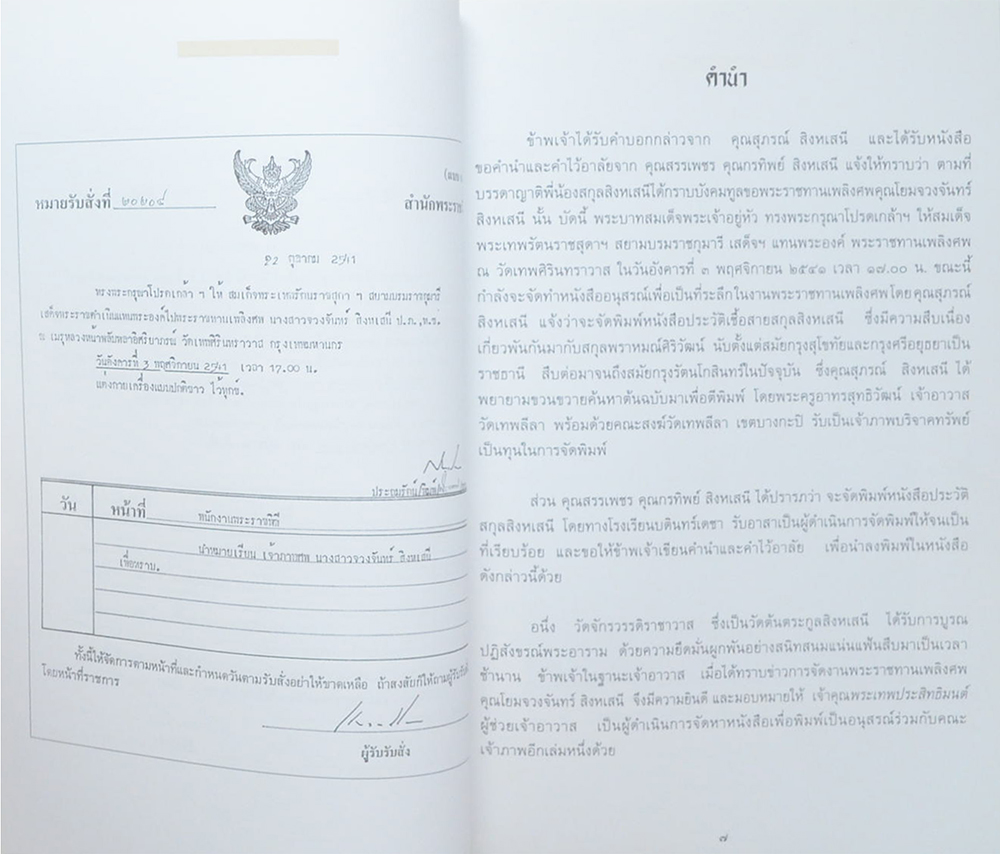 (แบบ
หมายรับสั่งที่ ๒๐๒๐๘
สำนักพระราช
22 ตุลาคม 2541
ทรงพระกรุณาโปรดเกล้า ฯ ให้ สมเด็จพระเทพรัตนราชสุดา ฯ สยามบรมราชกุมารี
เสด็จพระราชดำเนินแทนพระองค์ไปพระราชทานเพลิงศพ นางสาวจวงจันทร์ สิงหเสนี ป.ภ.,ท.ช.
ณ เมรุหลวงหน้าพลับพลาอิศริยาภรณ์ วัดเทพศิรินทราวาส กรุงเทพมหานคร
วันอังคารที่ 3 พฤศจิกายน 2541 เวลา 17.00 น.
แต่งกายเครื่องแบบปกติขาว ไว้ทุกข์.
วัน
หน้าที่ พนักงานพระราชพิธี
นำหมายเรียน เจ้าภาพศพ นางสาวจวงจันทร์ สิงหเสนี
เพื่อทราบ.
ทั้งนี้ให้จัดการตามหน้าที่และกำหนดวันตามรับสั่งอย่าให้ขาดเหลือ ถ้าสงสัยก็ให้ถามผู้รับรับสั่ง
โดยหน้าที่ราชการ
ผู้รับรับสั่ง
คำนำ
ข้าพเจ้าได้รับคำบอกกล่าวจาก คุณสุภรณ์ สิงหเสนี และได้รับหนังสือ
ขอคำนำและคำไว้อาลัยจาก คุณสรรเพชร คุณกรทิพย์ สิงหเสนี แจ้งให้ทราบว่า ตามที่
บรรดาญาติพี่น้องสกุลสิงหเสนีได้กราบบังคมทูลขอพระราชทานเพลิงศพคุณโยมจวงจันทร์
สิงหเสนี นั้น บัดนี้ พระบาทสมเด็จพระเจ้าอยู่หัว ทรงพระกรุณาโปรดเกล้าฯ ให้สมเด็จ
พระเทพรัตนราชสุดาฯ สยามบรมราชกุมารี เสด็จฯ แทนพระองค์ พระราชทานเพลิงศพ
ณ วัดเทพศิรินทราวาส ในวันอังคารที่ ๓ พฤศจิกายน ๒๕๔๑ เวลา ๑๗.๐๐ น. ขณะนี้
กำลังจะจัดทำหนังสืออนุสรณ์เพื่อเป็นที่ระลึกในงานพระราชทานเพลิงศพโดยคุณสุภรณ์
สิงหเสนี แจ้งว่าจะจัดพิมพ์หนังสือประวัติเชื้อสายสกุลสิงหเสนี ซึ่งมีความสืบเนื่อง
เกี่ยวพันกันมากับสกุลพราหมณ์ศิริวัฒน์ นับตั้งแต่สมัยกรุงสุโขทัยและกรุงศรีอยุธยาเป็น
ราชธานี สืบต่อมาจนถึงสมัยกรุงรัตนโกสินทร์ในปัจจุบัน ซึ่งคุณสุภรณ์ สิงหเสนี ได้
พยายามขวนขวายค้นหาต้นฉบับมาเพื่อตีพิมพ์ โดยพระครูอาทรสุทธิวัฒน์ เจ้าอาวาส
วัดเทพลีลา พร้อมด้วยคณะสงฆ์วัดเทพลีลา เขตบางกะปิ รับเป็นเจ้าภาพบริจาคทรัพย์
เป็นทุนในการจัดพิมพ์
ส่วน คุณสรรเพชร คุณกรทิพย์ สิงหเสนี ได้ปรารภว่า จะจัดพิมพ์หนังสือประวัติ
สกุลสิงหเสนี โดยทางโรงเรียนบดินทร์เดชา รับอาสาเป็นผู้ดำเนินการจัดพิมพ์ให้จนเป็น
ที่เรียบร้อย และขอให้ข้าพเจ้าเขียนคำนำและคำไว้อาลัย เพื่อนำลงพิมพ์ในหนังสือ
ดังกล่าวนี้ด้วย
อนึ่ง วัดจักรวรรดิราชาวาส ซึ่งเป็นวัดต้นตระกูลสิงหเสนี ได้รับการบูรณ
ปฏิสังขรณ์พระอาราม ด้วยความยึดมั่นผูกพันอย่างสนิทสนมแน่นแฟ้นสืบมาเป็นเวลา
ช้านาน ข้าพเจ้าในฐานะเจ้าอาวาส เมื่อได้ทราบข่าวการจัดงานพระราชทานเพลิงศพ
คุณโยมจวงจันทร์ สิงหเสนี จึงมีความยินดี และมอบหมายให้ เจ้าคุณพระเทพประสิทธิมนต์
ผู้ช่วยเจ้าอาวาส เป็นผู้ดำเนินการจัดหาหนังสือเพื่อพิมพ์เป็นอนุสรณ์ร่วมกับคณะ
เจ้าภาพอีกเล่มหนึ่งด้วย
๗